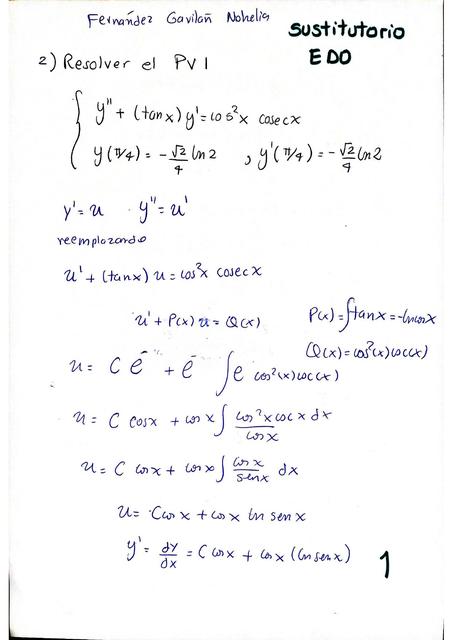 Fernández Gavilañ Nohelia
sustitutorio
EDO
2) Resolver el PVI
y'' + (tanx) y' = cos²x cosecx
y(π/4) = -√2/4 ln2 , y'(π/4) = -√2/4 ln2
y' = u y'' = u'
reemplazando
u' + (tanx) u = cos²x cosecx
u' + P(x) u = Q(x)
P(x) = ∫tanx = -lncosx
Q(x) = cos²(x) coc(x)
u = C e⁻ + e⁻ ∫e cos²(x) coc(x)
u = C cosx + cosx ∫ cos²x cocx dx / cosx
u = C cosx + cosx ∫ cosx / senx dx
u = C cosx + cosx ln senx
y' = dy/dx = C cosx + cosx (ln senx)
1